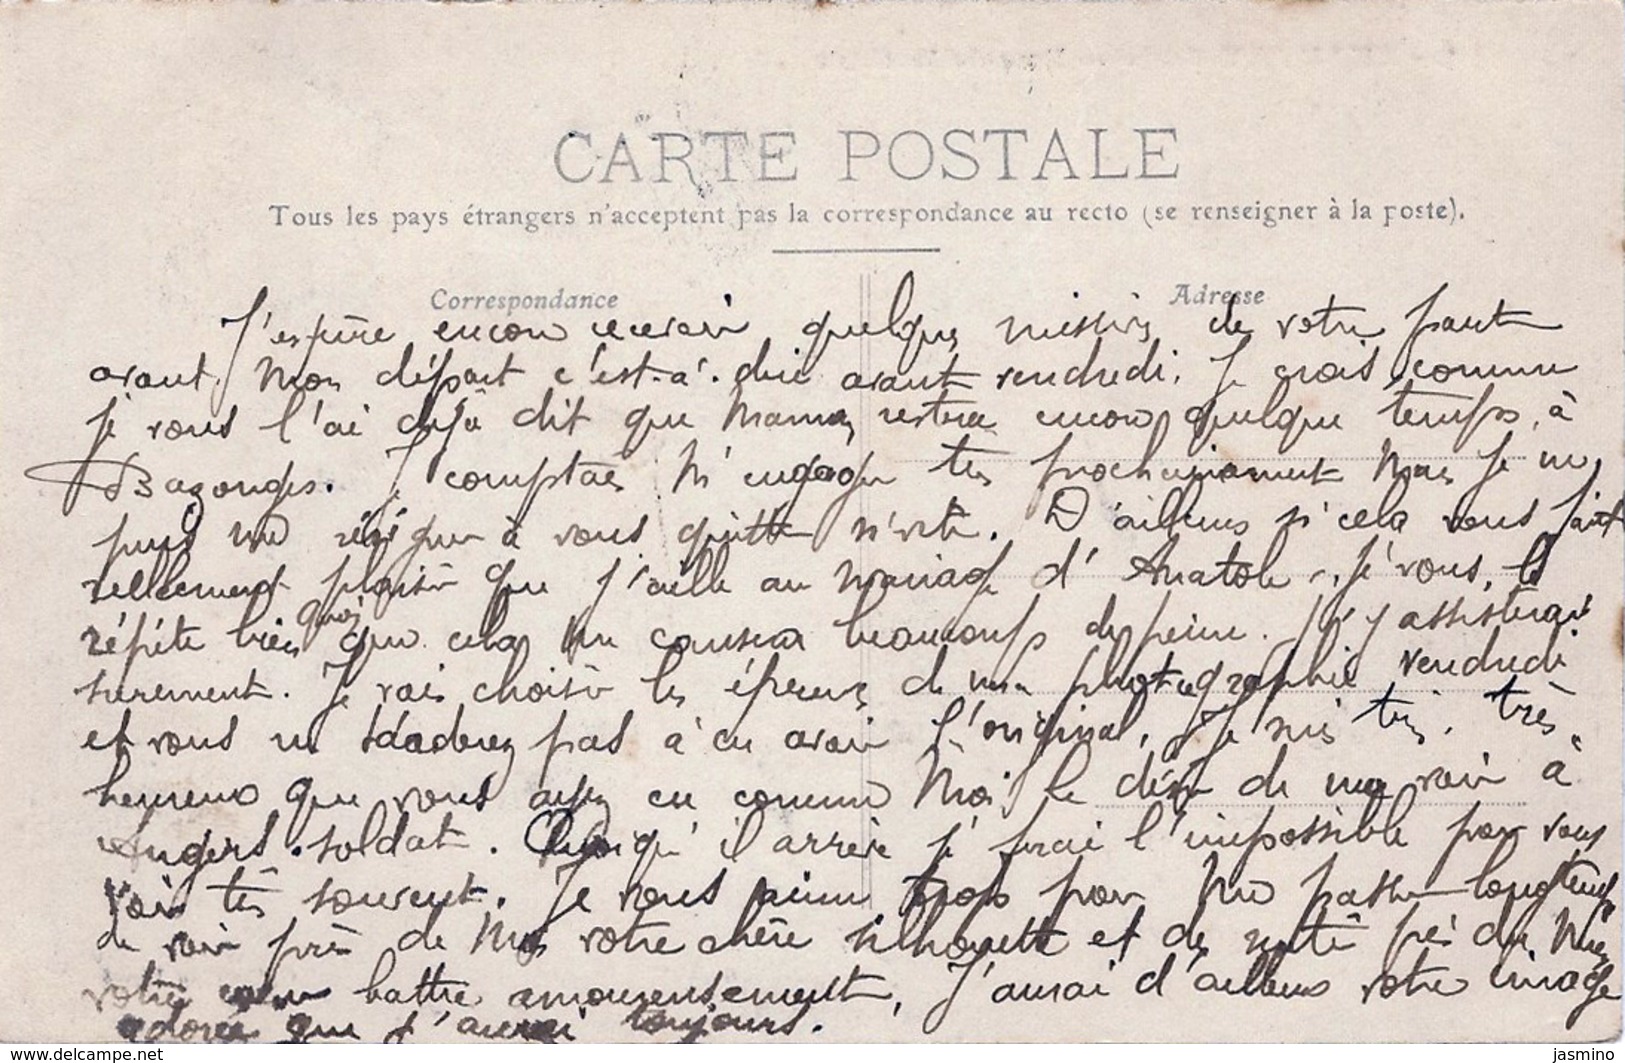 CARTE POSTALE
Tous les pays étrangers n'acceptent pas la correspondance au recto (se renseigner à la poste).
Correspondance
Adresse
J'espère encore recevoir quelques missives de votre part
avant mon départ c'est-à-dire avant vendredi. Je crois comme
je vous l'ai déjà dit que Maman restera encore quelque temps à
Bazouges. Je comptais m'engager très prochainement mais je ne
puis me résigner à vous quitter si vite. D'ailleurs si cela vous fait
réellement plaisir que j'aille au mariage d'Anatole, je vous le
répète bien quoi que cela me causera beaucoup de peine. J'y assisterai
surement. Je vais choisir les épreuves de ma photographie vendredi
et vous ne tarderez pas à en avoir l'original. Je suis très, très
heureux que vous ayez eu comme moi le désir de me voir à
Angers soldat. Quoiqu'il arrive je ferai l'impossible pour vous
voir très souvent. Je vous aime trop pour me passer longtemps
de voir près de moi votre chère silhouette et de sentir près du mien
votre cœur battre amoureusement. J'aurai d'ailleurs votre image
adorée que j'aurai toujours.
delcampe.net
jasmino